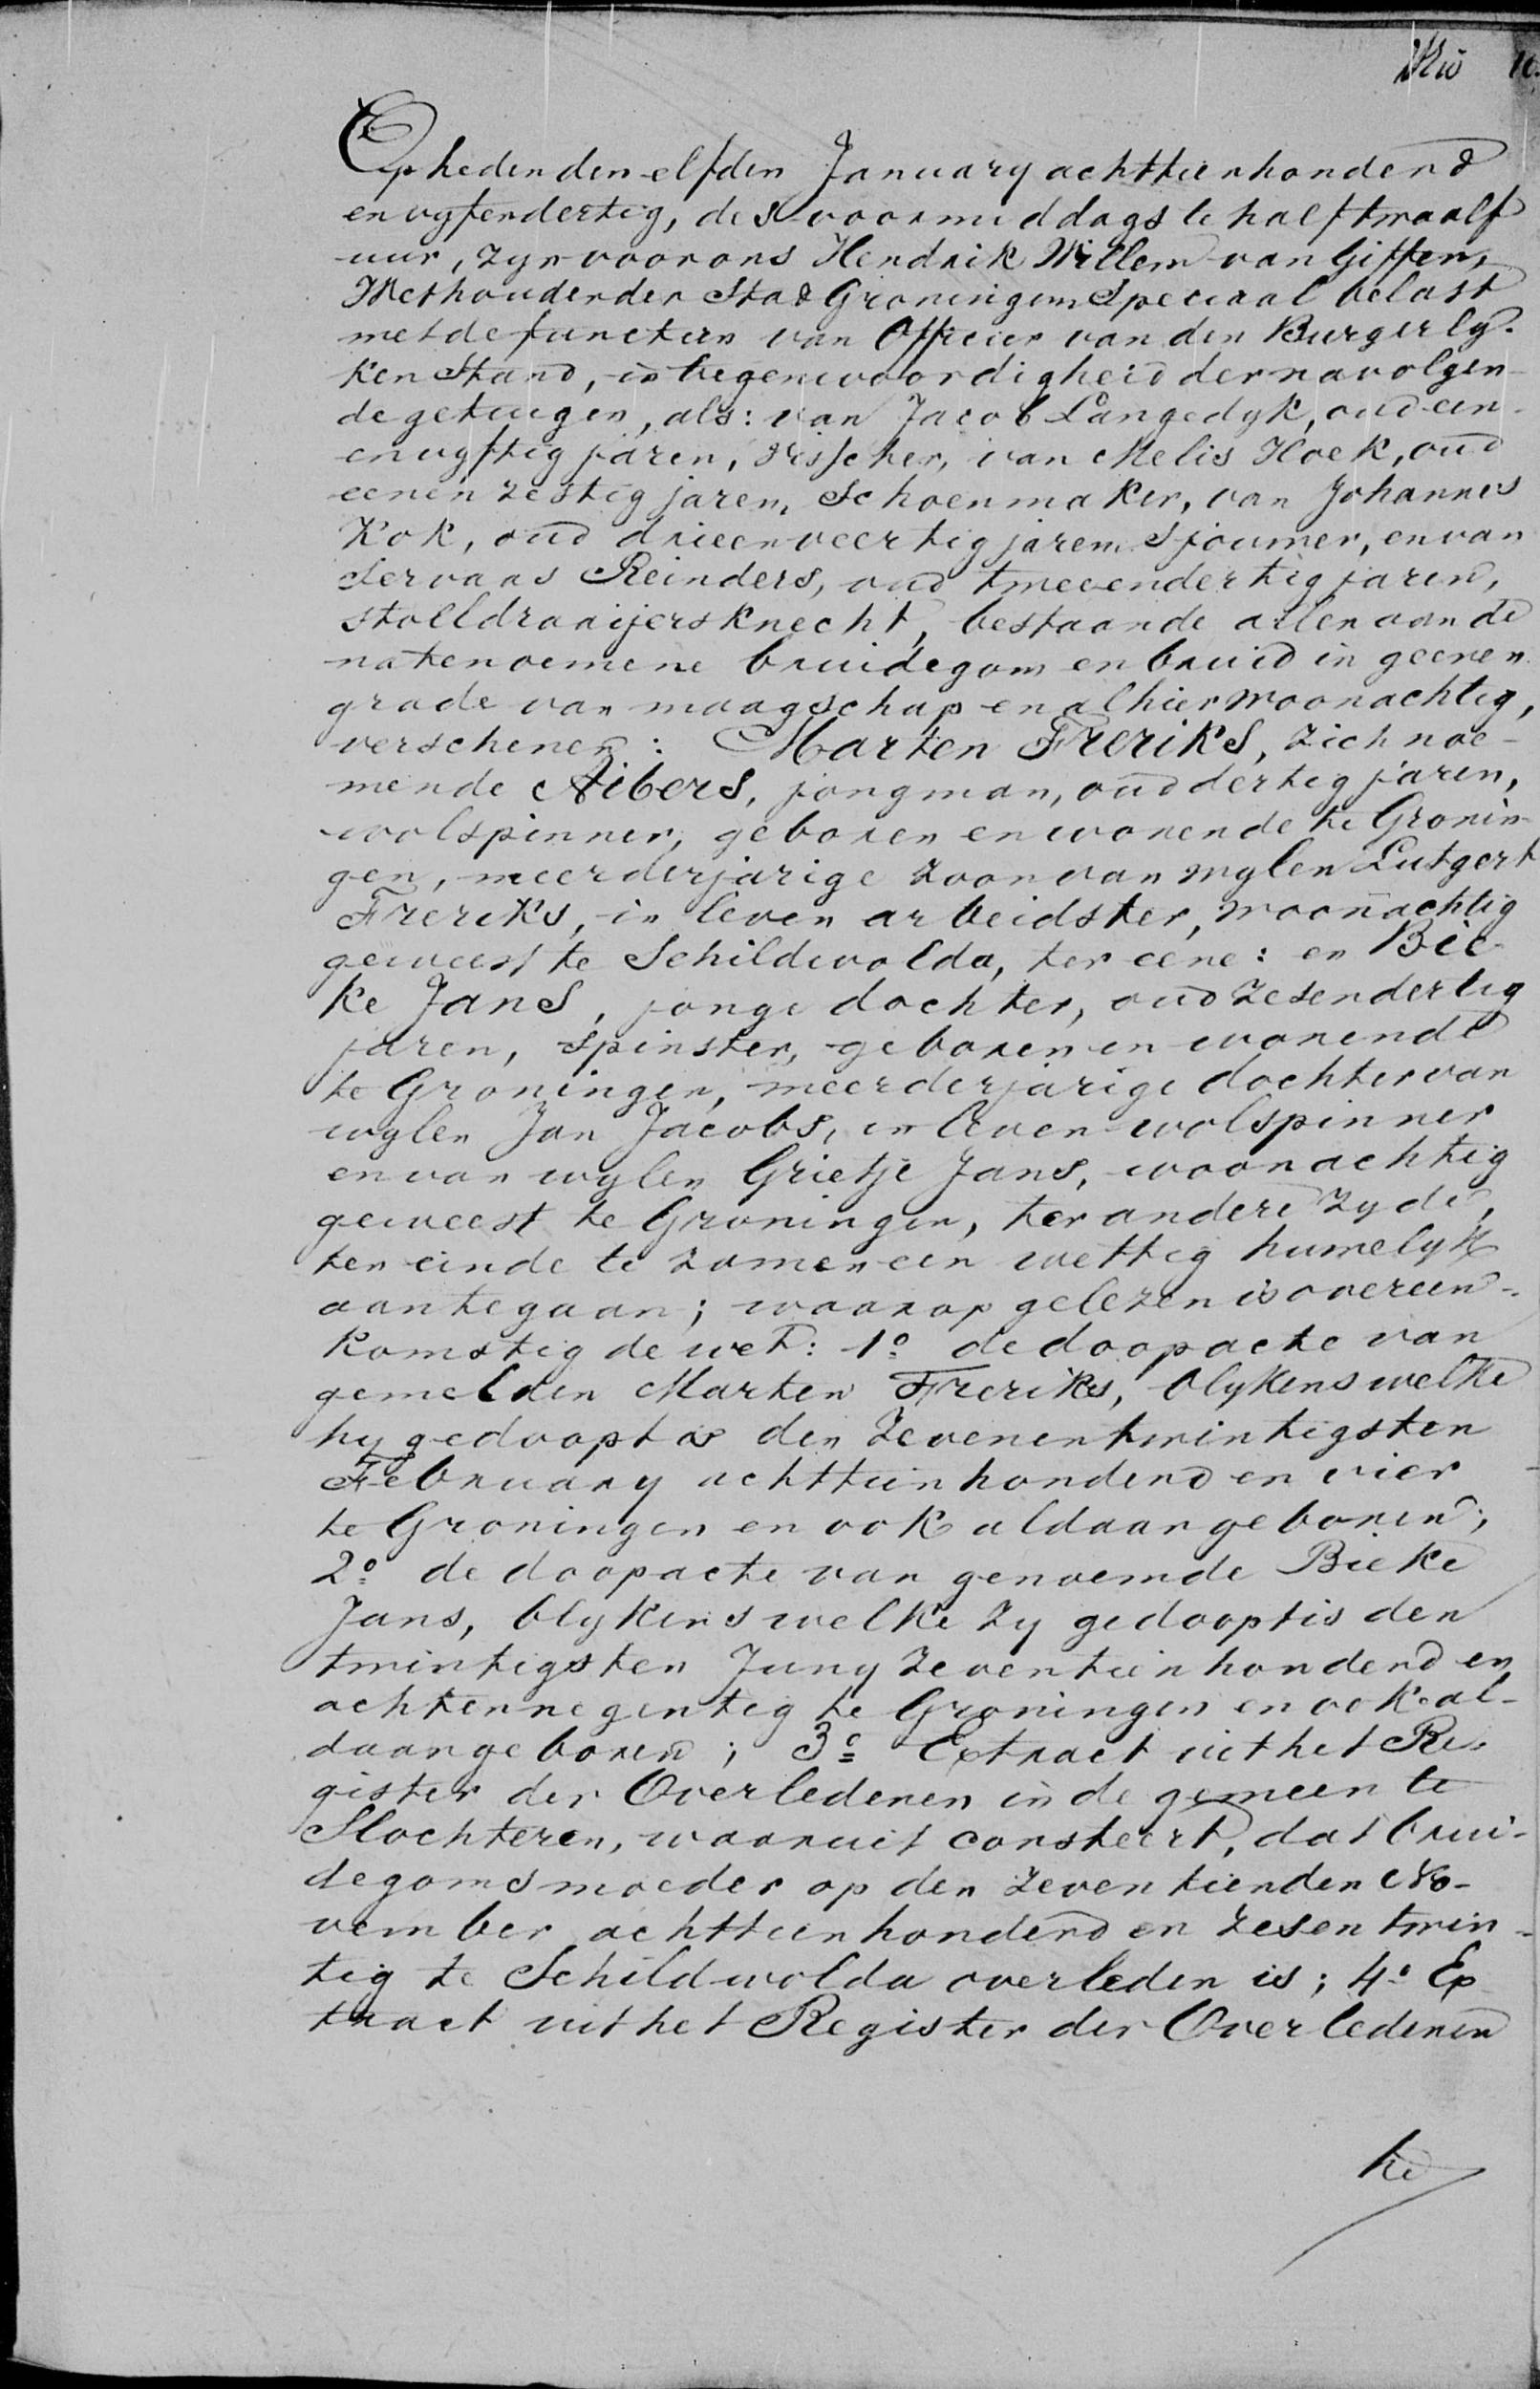 Op heden den elfden January achttienhonderd
en vyfendertig, des voormiddags te half twaalf
uur, zyn voor ons Hendrik Willem van Giffen,
Wethouder der Stad Groningen Speciaal belast
met de functien van Officier van den Burgerly-
ken Stand, in tegenwoordigheid der navolgen-
de getuigen, als: van Jacob Langedyk, oud een-
en vyftig jaren, Visscher, van Melis Hoek, oud
eenen zestig jaren, Schoenmaker, van Johannes
Kok, oud drieenveertig jaren Sjouwer, en van
Servaas Reinders, oud tweeendertig jaren,
stoeldraaijersknecht, bestaande allen aan de
natenoemene bruidegom en bruid in geenen
grade van maagschap en alhier woonachtig,
verschenen: Marten Freriks, zich noe-
mende Aibers, jongman, oud dertig jaren,
wolspinner, geboren en wonende te Gronin-
gen, meerderjarige zoon van wylen Lutgert
Freriks, in leven arbeidster, woonachtig
geweest te Schildwolda, ter eene: en Bie-
ke Jans, jonge dochter, oud zesendertig
jaren, spinster, geboren en wonende
te Groningen, meerderjarige dochter van
wylen Jan Jacobs, in leven wolspinner
en van wylen Grietje Jans, woonachtig
geweest te Groningen, ter andere zyde,
ten einde te zamen een wettig huwelyk
aantegaan; waarop gelezen is overeen-
komstig de wet: 1º de doopacte van
gemelden Marten Freriks, blykens welke
hy gedoopt is den Zevenentwintigsten
February achttienhonderd en vier
te Groningen en ook aldaar geboren;
2º de doopacte van genoemde Bieke
Jans, blykens welke zy gedoopt is den
twintigsten Juny zeventienhonderd en
achtennegentig te Groningen en ook al-
daar geboren; 3º Extract uit het Re-
gister der Overledenen in de gemeente
Slochteren, waaruit consteert, dat brui-
degoms moeder op den zeventienden No-
vember achttienhonderd en zesentwin-
tig te Schildwolda overleden is; 4º Ex
tract uit het Register der Overledenen
te